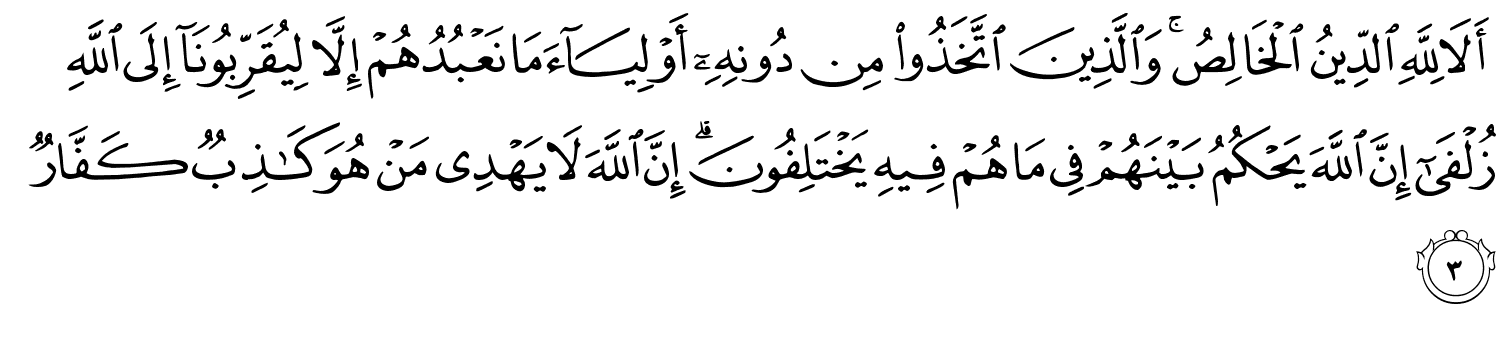 أَلَا لِلَّهِ ٱلدِّينُ ٱلْخَالِصُ ۚ وَٱلَّذِينَ ٱتَّخَذُوا۟ مِن دُونِهِۦٓ أَوْلِيَآءَ مَا نَعْبُدُهُمْ إِلَّا لِيُقَرِّبُونَآ إِلَى ٱللَّهِ
زُلْفَىٰٓ إِنَّ ٱللَّهَ يَحْكُمُ بَيْنَهُمْ فِى مَا هُمْ فِيهِ يَخْتَلِفُونَ ۗ إِنَّ ٱللَّهَ لَا يَهْدِى مَنْ هُوَ كَـٰذِبٌ كَفَّارٌ
٣